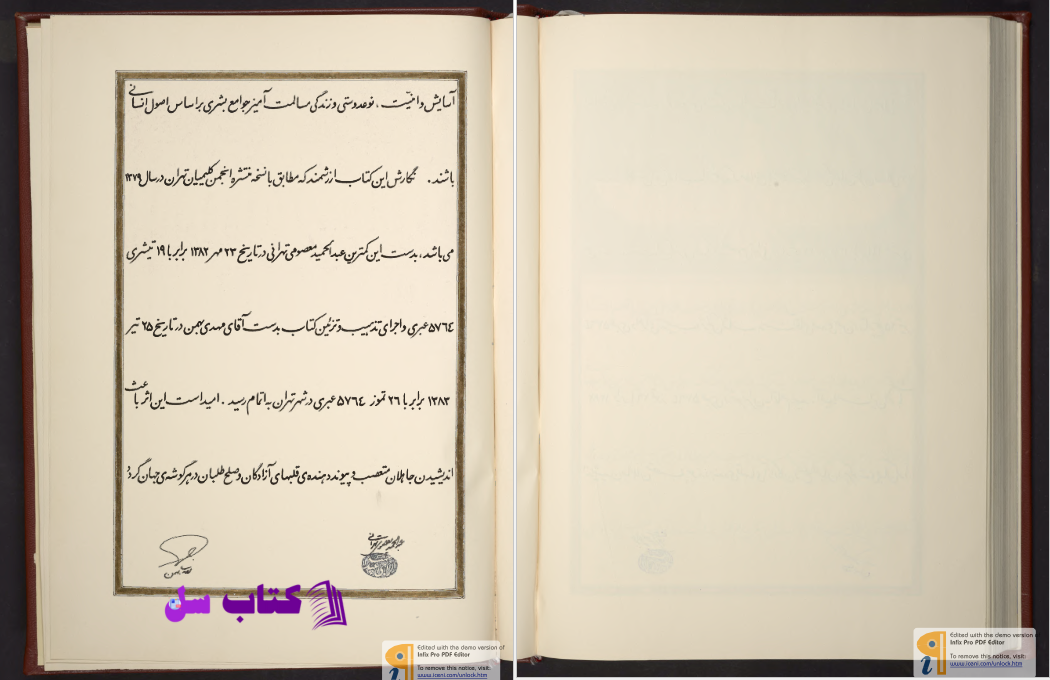 آسایش و امنیّت ، نوعدوستی و زندگی مسالمت آمیز جوامع بشری بر اساس اصول انسانی
باشند . نگارش این کتاب ارزشمند که مطابق با نسخه منتشره انجمن کلیمیان تهران در سال ۱۳۷۹
می باشد ، بدست این کمترین عبدالحمید معصومی تهرانی در تاریخ ۲۳ مهر ۱۳۸۲ برابر با ۱۹ تیشری
۵۷۶۴ عبری و اجرای تذهیب و تزئین کتاب بدست آقای مهدی بهمن در تاریخ ۲۵ تیر
۱۳۸۳ برابر با ۲۶ تموز ۵۷۶۴ عبری در شهر تهران به اتمام رسید . امید است این اثر باعث
اندیشیدن جاهلان متعصب و پیوند دهنده ی قلبهای آزادگان و صلح طلبان در هر گوشه ی جهان گردد
کتاب سل
Edited with the demo version of
Infix Pro PDF Editor
To remove this notice, visit:
www.iceni.com/unlock.htm
Edited with the demo version of
Infix Pro PDF Editor
To remove this notice, visit:
www.iceni.com/unlock.htm